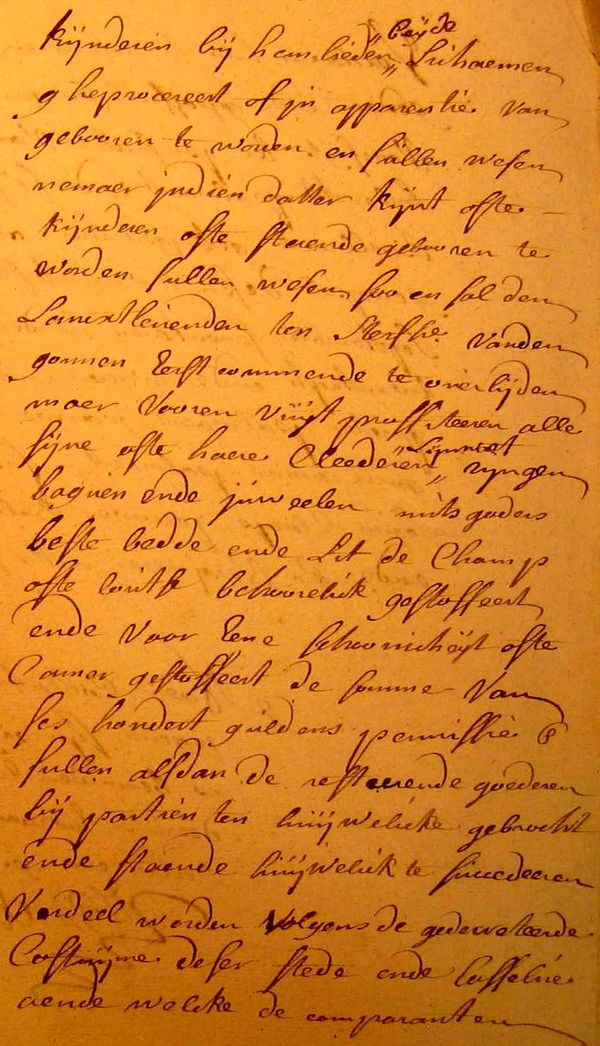 kijnderen bij hunlieden „beijde„ Lichaemen
gheprocereert of jn apparentie van
gebooren te worden en sullen wesen
nemaer jndien datter kijnt ofte
kijnderen ofte staende gebooren te
worden sullen wesen soo en sal den
Lancxtlevenden ten sterfhe vanden
gonnen eerst commende te overlijden
maer vooren vuijt proffiteeren alle
sijne ofte haere Cleederen „Lijnwaet„ ryngen
bagien ende juweelen mitsgaders
beste bedde ende Lit de Champ
ofte behoorelick gestoffeert
ende voor eene ofte
Camer gestoffeert de somme van
ses hondert guldens permissie &
sullen alsdan de resterende goederen
bij partien ten huijwelicke gebrocht
ende staende huijwelick te succedeeren
verdeel worden volgens de gedecreteerde
Costuijme deser stede ende casselrie
aende welcke de comparanten